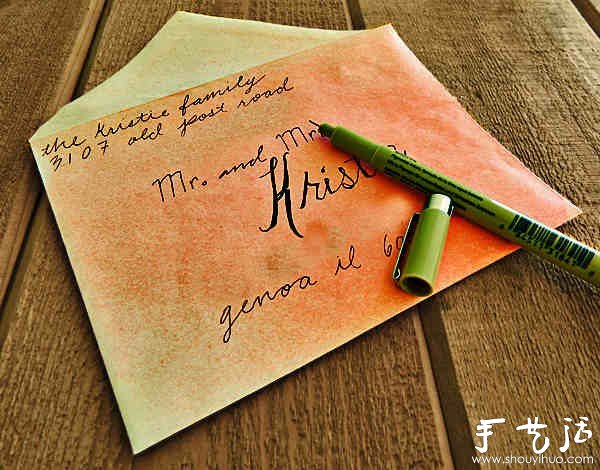 the Kristie family
3107 old post road
Mr. and Mrs
Krist
genoa il 60
手艺活
www.shouyihuo.com